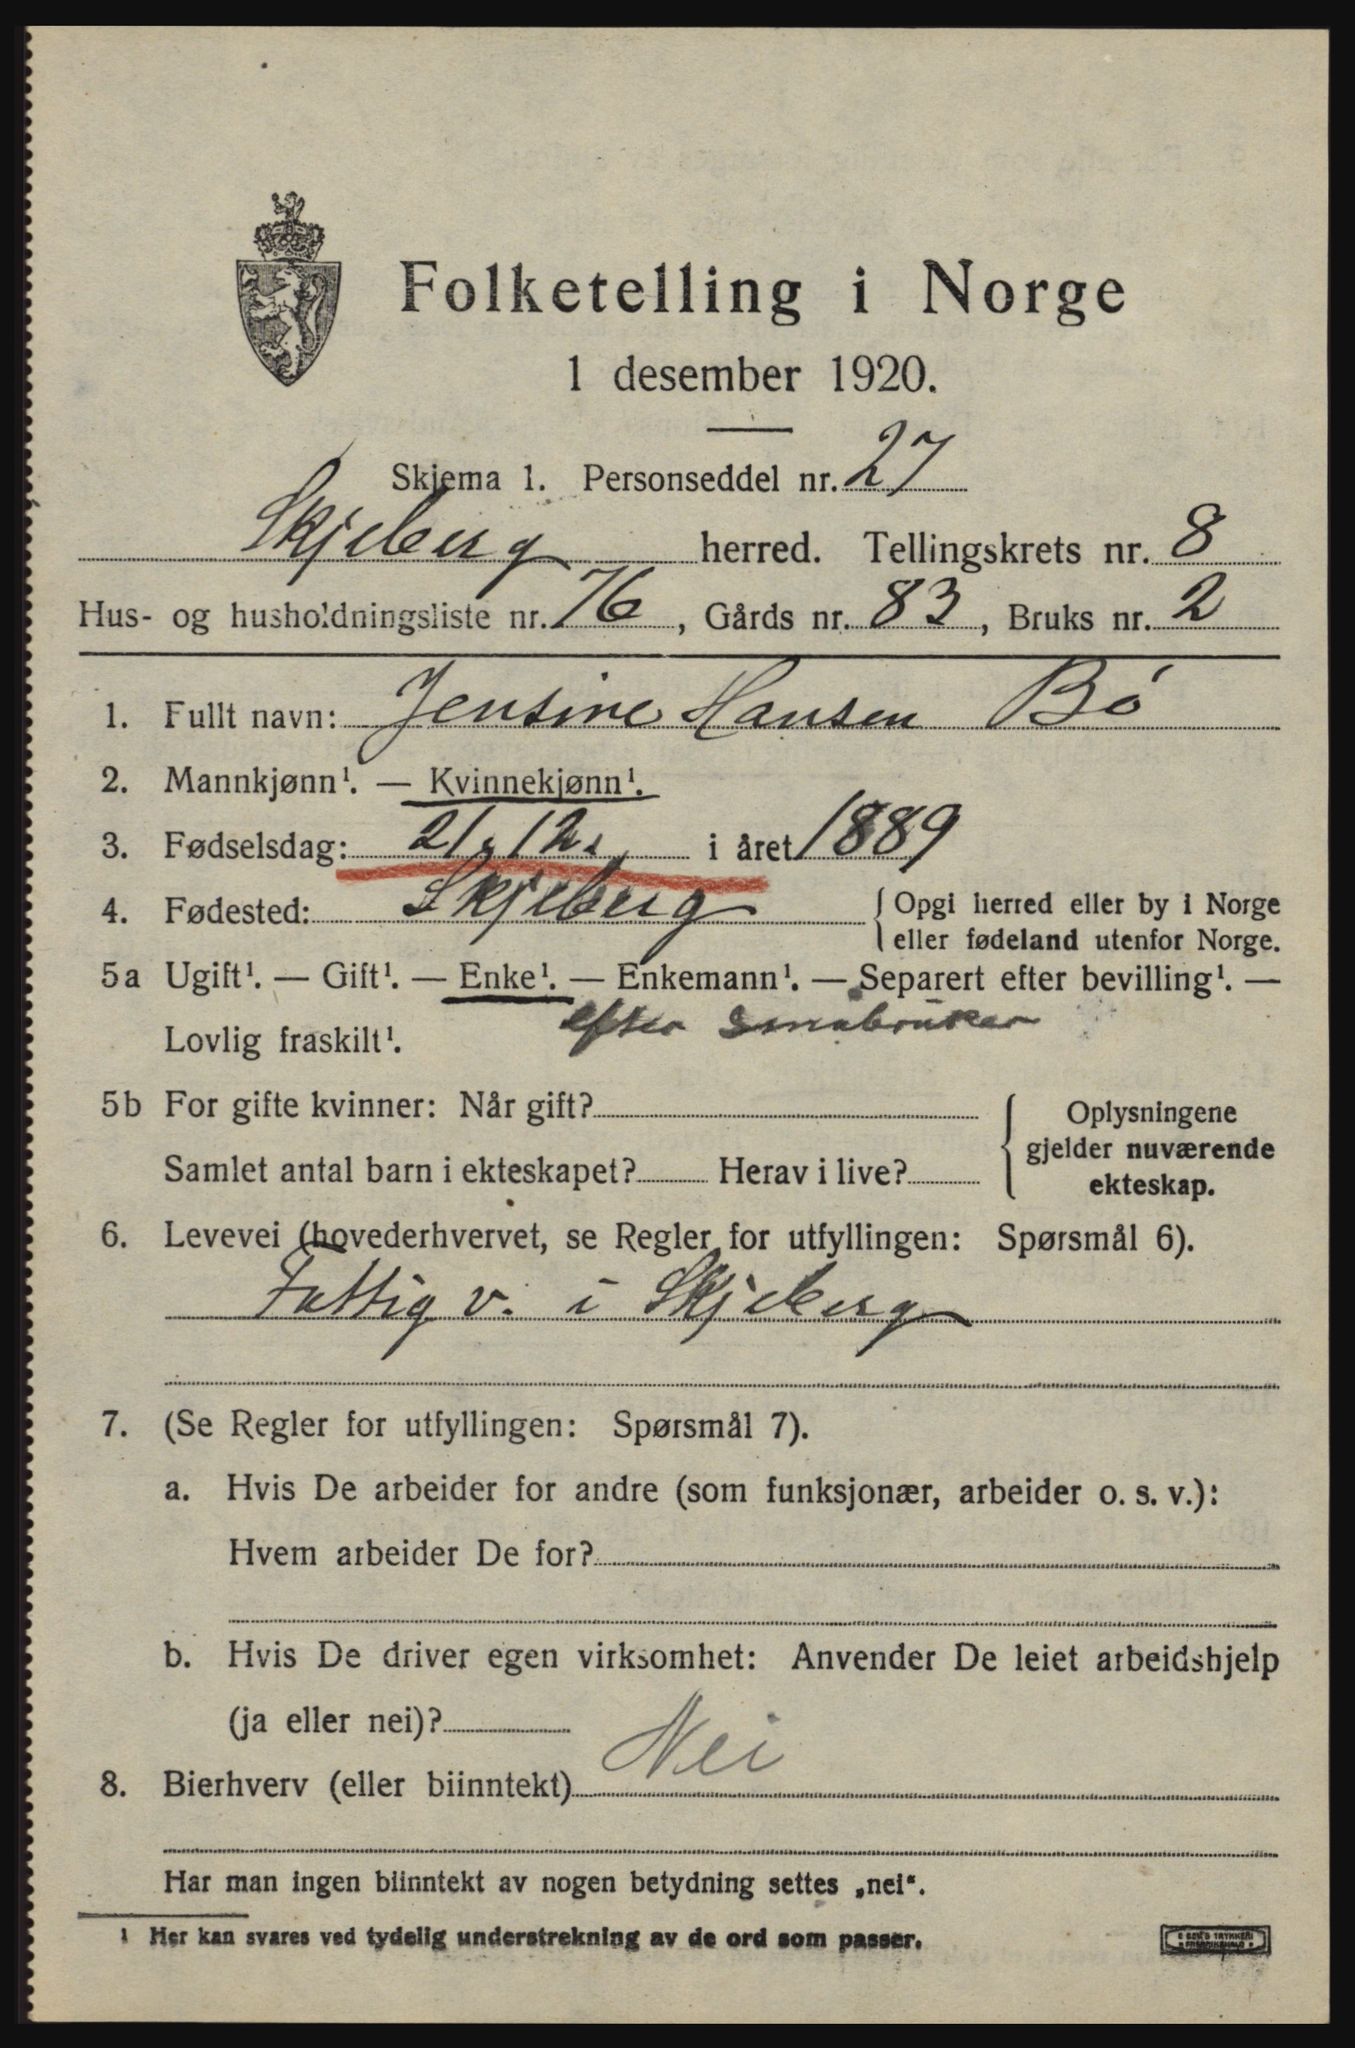 Folketelling i Norge
1 desember 1920.
Skjema 1. Personseddel nr. 27
Skjeberg herred. Tellingskrets nr. 8
Hus- og husholdningsliste nr. 76, Gårds nr. 83, Bruks nr. 2
1. Fullt navn: Jensine Hansen Bö
2. Mannkjønn¹. — Kvinnekjønn¹.
3. Fødselsdag: 21.12. i året 1889
4. Fødested: Skjeberg { Opgi herred eller by i Norge
eller fødeland utenfor Norge.
5a Ugift¹. — Gift¹. — Enke¹. — Enkemann¹. — Separert efter bevilling¹. —
efter småbruker
Lovlig fraskilt¹.
5b For gifte kvinner: Når gift? { Oplysningene
gjelder nuværende
Samlet antal barn i ekteskapet? Herav i live?
ekteskap.
6. Levevei (hovederhvervet, se Regler for utfyllingen: Spørsmål 6).
Fattig v. i Skjeberg
7. (Se Regler for utfyllingen: Spørsmål 7).
a. Hvis De arbeider for andre (som funksjonær, arbeider o. s. v.):
Hvem arbeider De for?
b. Hvis De driver egen virksomhet: Anvender De leiet arbeidshjelp
(ja eller nei)?
8. Bierhverv (eller biinntekt) Nei
Har man ingen biinntekt av nogen betydning settes „nei“.
1 Her kan svares ved tydelig understrekning av de ord som passer.